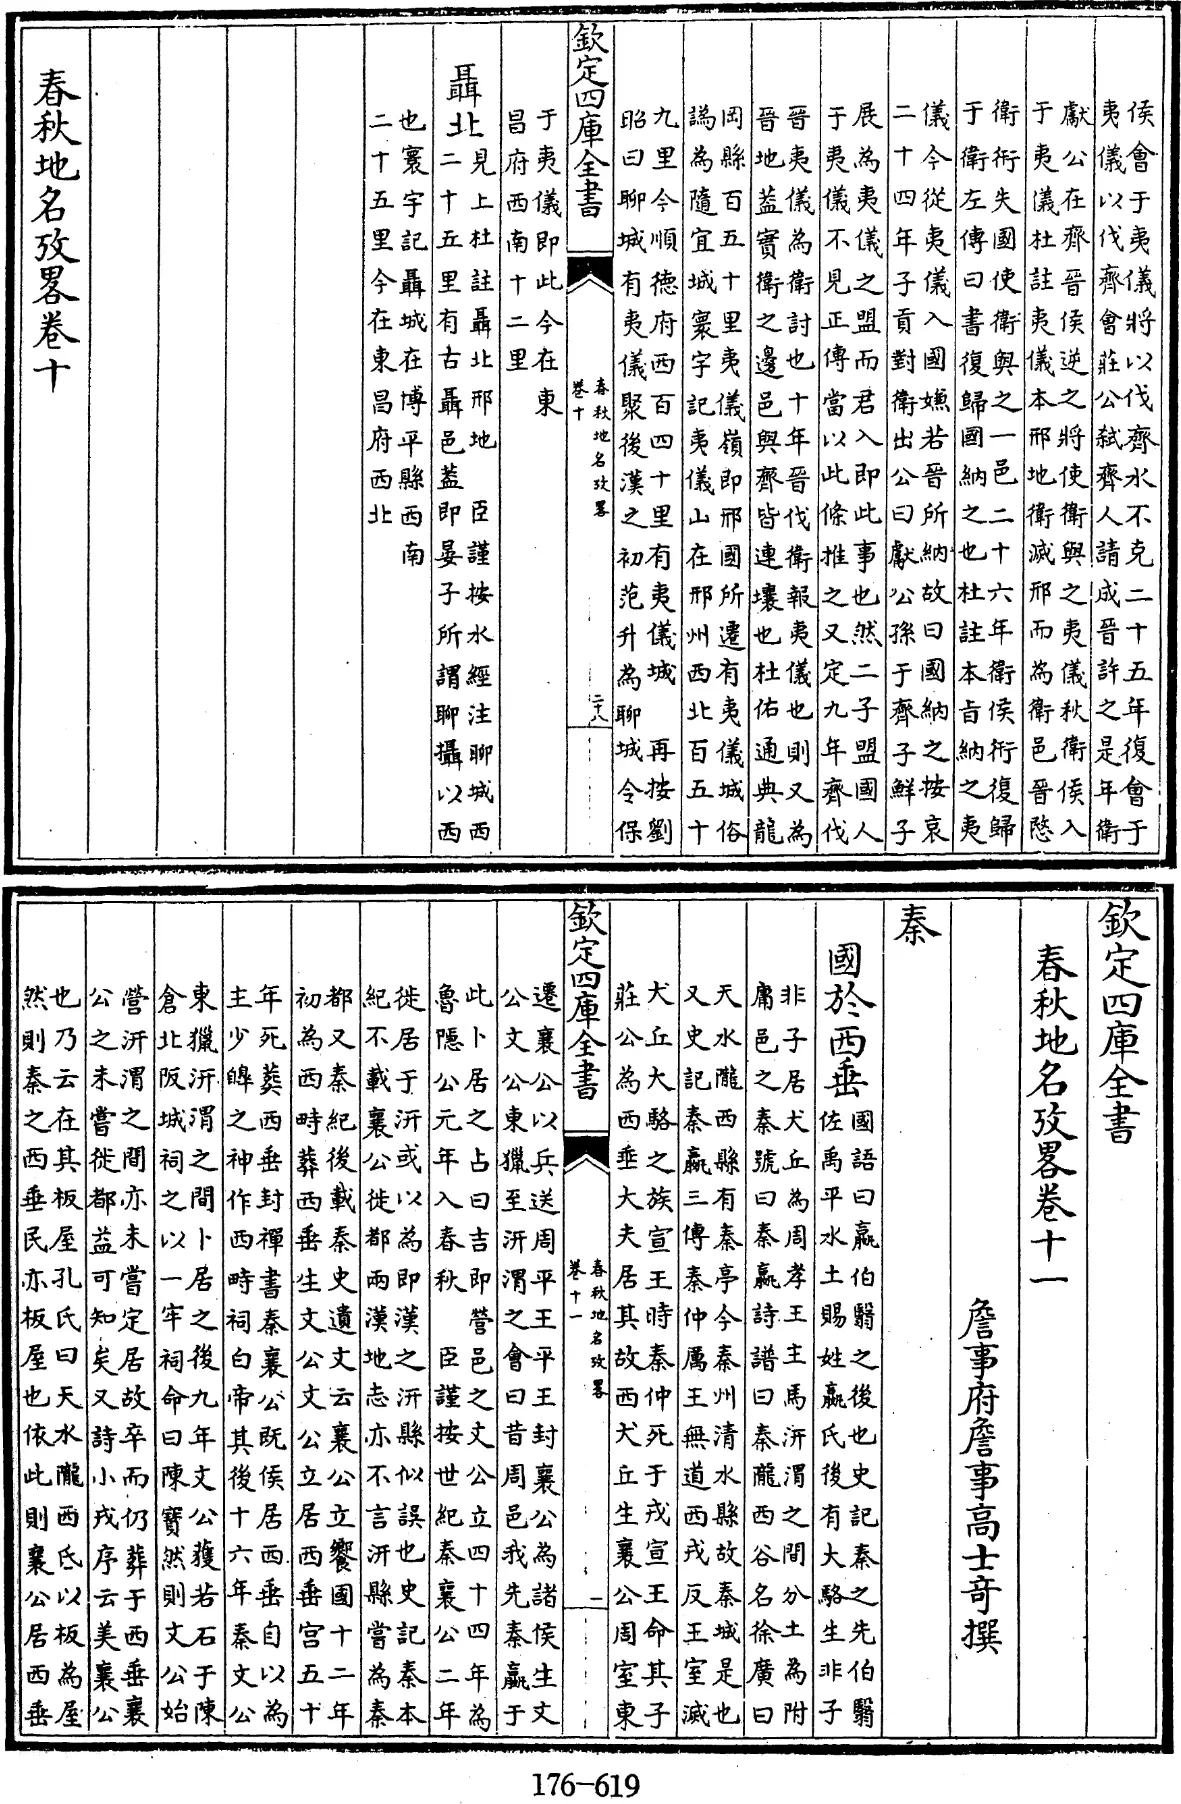 侯會于夷儀將以伐齊水不克二十五年復會于
夷儀以伐齊會莊公弑齊人請成晉許之是年衛
獻公在齊晉侯逆之將使衛與之夷儀秋衛侯入
于夷儀杜註夷儀本邢地衛滅邢而為衛邑晉愍
衛衎失國使衛與之一邑二十六年衛侯衎復歸
于衛左傳曰書復歸國納之也杜註本㫖納之夷
儀今從夷儀入國嫌若晉所納故曰國納之按哀
二十四年子貢對衛出公曰獻公孫于齊子鮮子
展為夷儀之盟而君入即此事也然二子盟國人
于夷儀不見正傳當以此條推之又定九年齊伐
晉夷儀為衛討也十年晉伐衛報夷儀也則又為
晉地葢實衛之邊邑與齊皆連壤也杜佑通典龍
岡縣百五十里夷儀嶺即邢國所遷有夷儀城俗
譌為隨宜城寰字記夷儀山在邢州西北百五十
九里今順德府西百四十里有夷儀城 再按劉
昭曰聊城有夷儀聚後漢之初范升為聊城令保
欽定四庫全書
春秋地名攷畧
卷十
二十八
于夷儀即此今在東
昌府西南十二里
聶北
見上杜註聶北邢地 臣謹按水經注聊城西
二十五里有古聶邑葢即晏子所謂聊攝以西
也寰宇記聶城在博平縣西南
二十五里今在東昌府西北
春秋地名攷畧卷十
欽定四庫全書
春秋地名攷畧卷十一
詹事府詹事高士竒撰
秦
國於西垂
國語曰嬴伯翳之後也史記秦之先伯翳
佐禹平水土賜姓嬴氏後有大駱生非子
非子居犬丘為周孝王主馬汧渭之間分土為附
庸邑之秦號曰秦嬴詩譜曰秦隴西谷名徐廣曰
天水隴西縣有秦亭今秦州清水縣故秦城是也
又史記秦嬴三傳秦仲厲王無道西戎反王室滅
犬丘大駱之族宣王時秦仲死于戎宣王命其子
莊公為西垂大夫居其故西犬丘生襄公周室東
欽定四庫全書
春秋地名攷畧
卷十一
一
遷襄公以兵送周平王平王封襄公為諸侯生文
公文公東獵至汧渭之會曰昔周邑我先秦嬴于
此卜居之占曰吉即營邑之文公立四十四年為
魯隱公元年入春秋 臣謹按世紀秦襄公二年
徙居于汧或以為即漢之汧縣似誤也史記秦本
紀不載襄公徙都兩漢地志亦不言汧縣嘗為秦
都又秦紀後載秦史遺文云襄公立饗國十二年
初為西畤葬西垂生文公文公立居西垂宫五十
年死葬西垂封禪書秦襄公既侯居西垂自以為
主少皡之神作西畤祠白帝其後十六年秦文公
東獵汧渭之間卜居之後九年文公獲若石于陳
倉北阪城祠之以一牢祠命曰陳寶然則文公始
營汧渭之間亦未嘗定居故卒而仍葬于西垂襄
公之未嘗徙都益可知矣又詩小戎序云美襄公
也乃云在其板屋孔氏曰天水隴西氏以板為屋
然則秦之西垂民亦板屋也依此則襄公居西垂
176-619